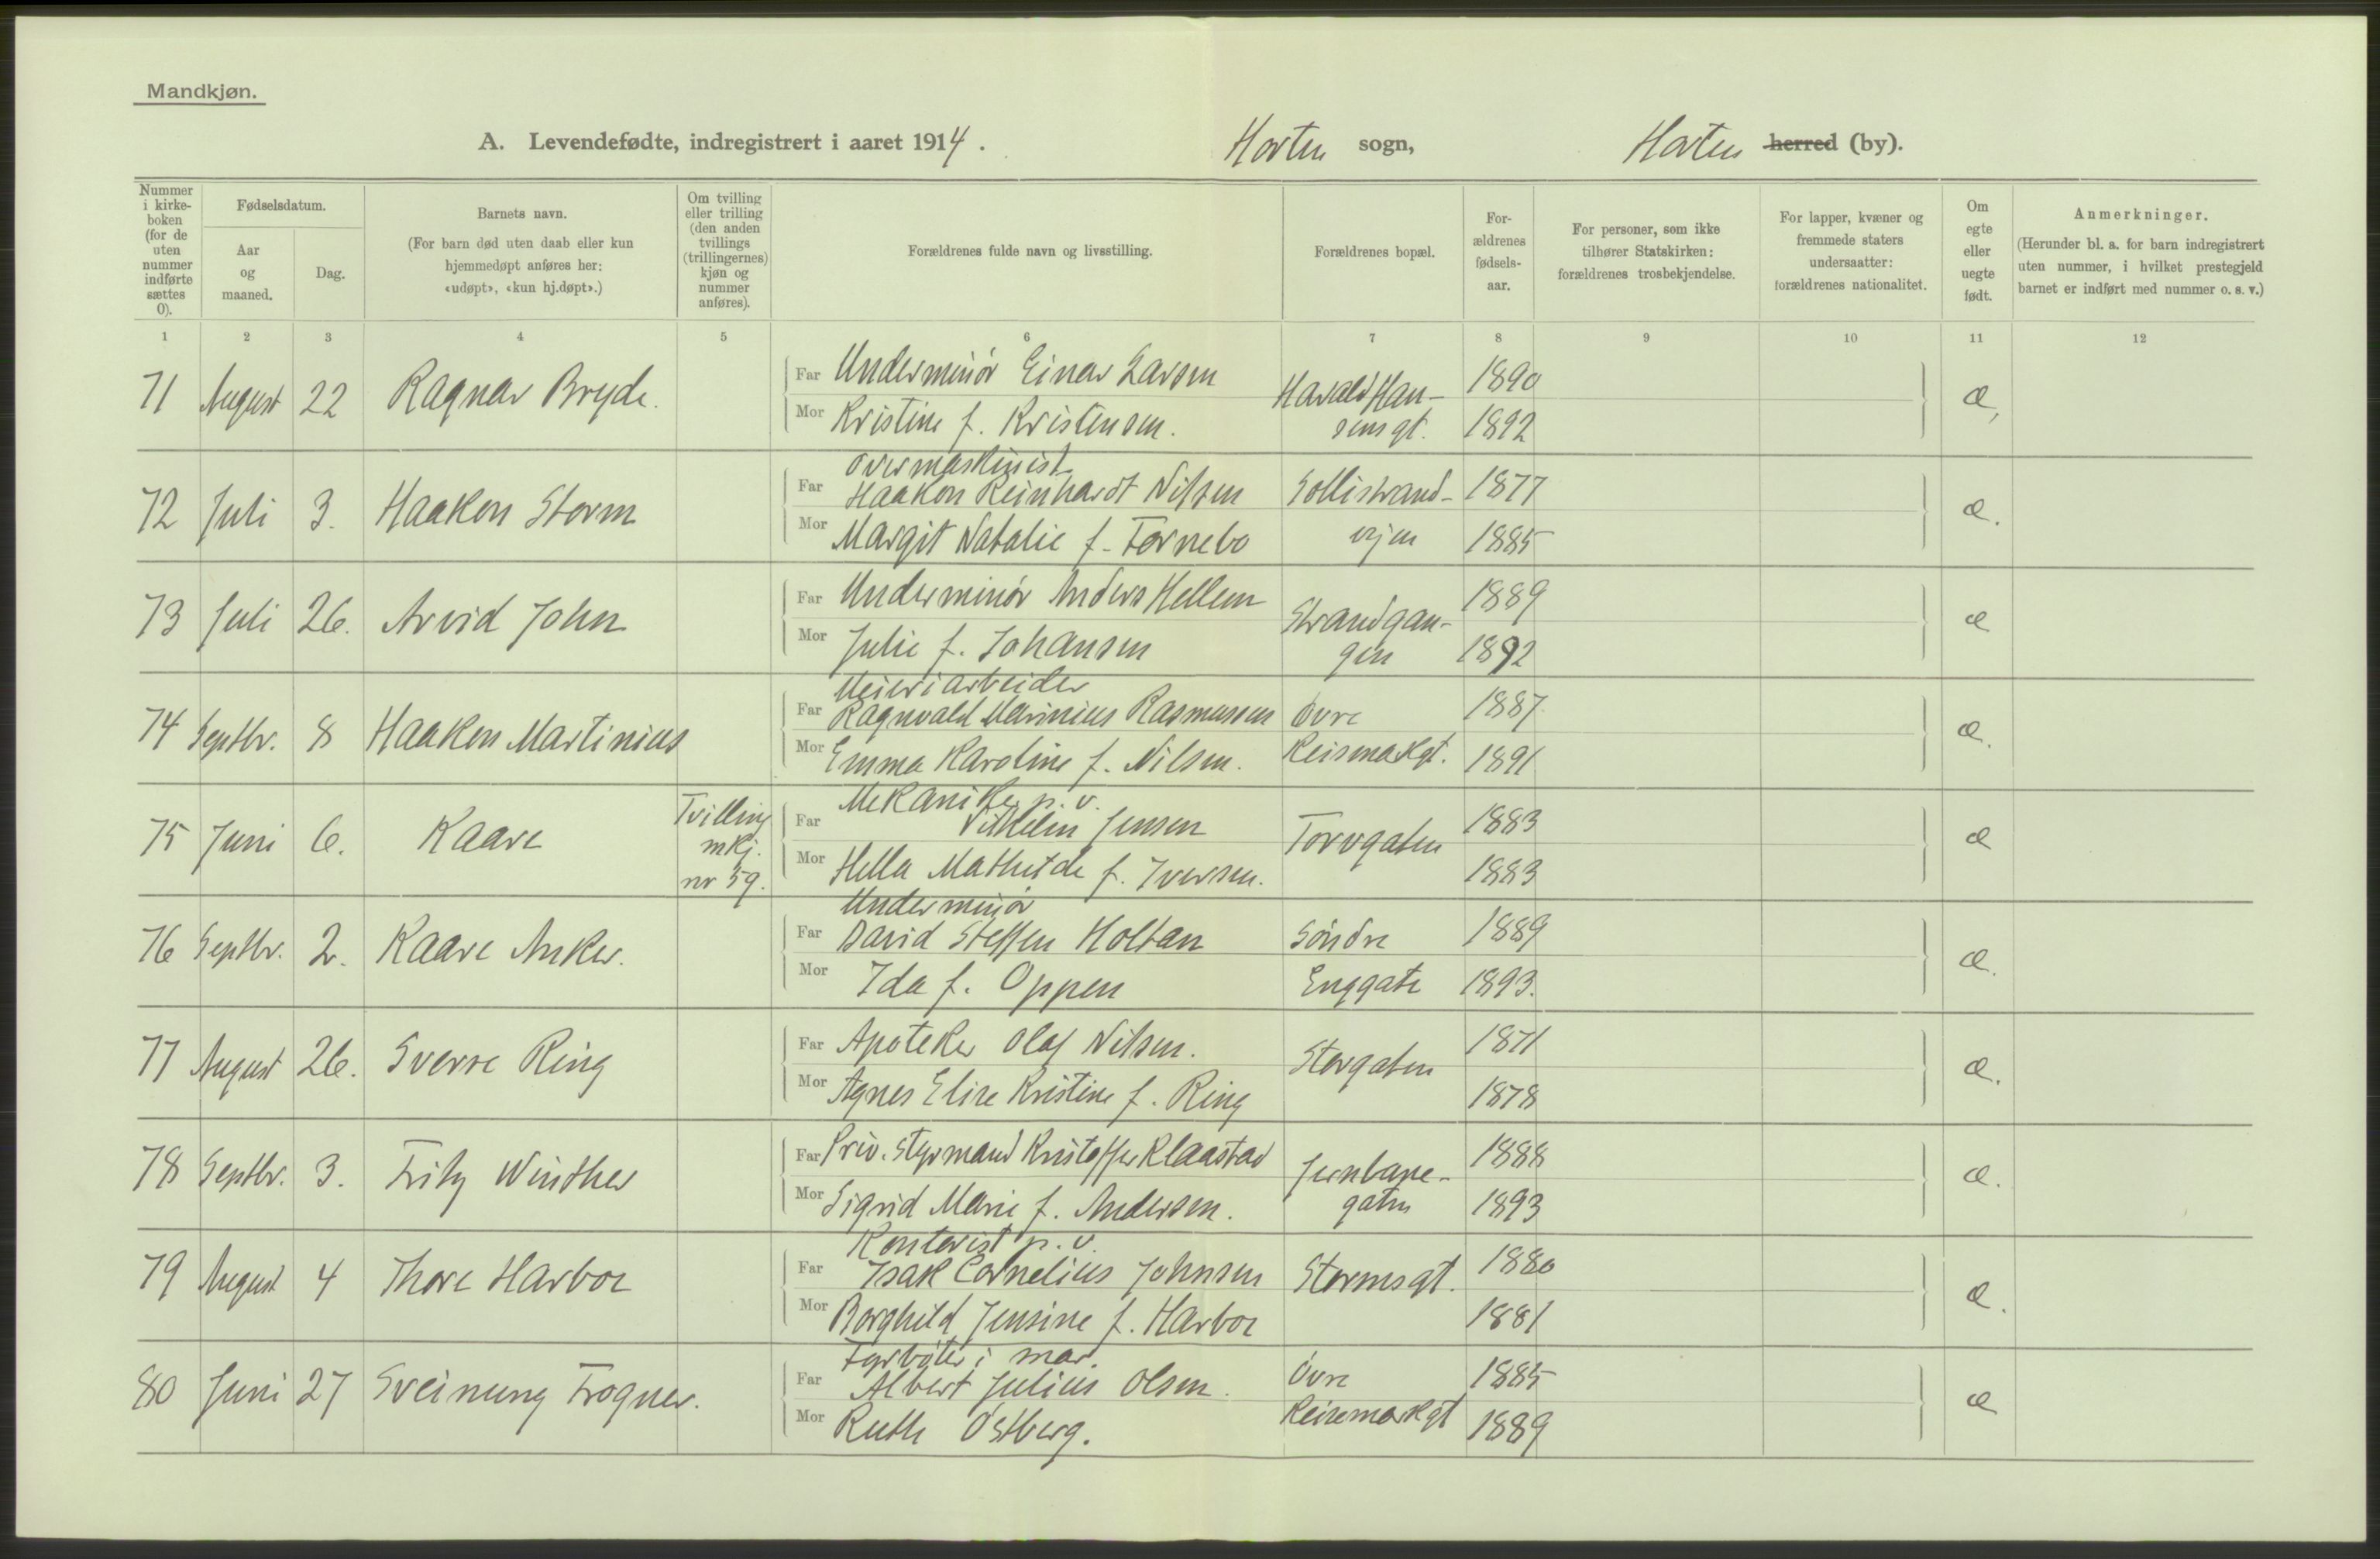 Mandkjøn.
A. Levendefødte, indregistrert i aaret 1914. Horten sogn, Horten herred (by).
Nummer i kirkeboken (for de uten nummer indførte sættes 0).
Fødselsdatum.
Aar og maaned.
Dag.
Barnets navn.
(For barn død uten daab eller kun hjemmedøpt anføres her: «udøpt», «kun hj.døpt».)
Om tvilling eller trilling (den anden tvillings (trillingernes) kjøn og nummer anføres).
Forældrenes fulde navn og livsstilling.
Forældrenes bopæl.
Forældrenes fødselsaar.
For personer, som ikke tilhører Statskirken: forældrenes trosbekjendelse.
For lapper, kvæner og fremmede staters undersaatter: forældrenes nationalitet.
Om egte eller uegte født.
Anmerkninger.
(Herunder bl. a. for barn indregistrert uten nummer, i hvilket prestegjeld barnet er indført med nummer o. s. v.)
1 2 3 4 5 6 7 8 9 10 11 12
71 August 22 Ragnar Bryde.
Far Underminör Einar Larsen Harald Han- 1890 æ,
Mor Kristine f. Kristensen. sensgt. 1892
overmaskinist
72 Juli 3. Haakon Storm
Far Haakon Reinhardt Nilsen Sollistrand- 1877 æ.
Mor Margit Natalie f. Fornebo vejen 1885
73 Juli 26. Arvid John
Far Underminör Anders Hellem Strandgan- 1889 æ
Mor Julie f. Johansen gen 1892
Meieriarbeider
74 Septbr. 8 Haakon Martinius
Far Ragnvald Marinius Rasmussen Övre 1887 æ.
Mor Emma Karoline f. Nilsen. Keisemarkgt. 1891
Mekaniker p. v.
75 Juni 6. Kaare Tvilling mkj. nr 59.
Far Vilhelm Jensen Torvgaten 1883 æ
Mor Hella Mathilde f. Iversen. 1883
Underminör
76 Septbr. 2. Kaare Anker.
Far David Steffen Holtan Söndre 1889 æ.
Mor Ida f. Oppen Enggate 1893.
77 August 26. Sverre Ring
Far Apoteker Olaf Nilsen. Storgaten 1871 æ.
Mor Agnes Elise Kristine f. Ring 1878
78 Septbr. 3. Fritz Winther
Far Priv. Styrmand Kristoffer Klaastad Jernbane- 1888 æ.
Mor Sigrid Marie f. Andersen. gaten 1893
Kontorist p. v.
79 August 4 Thore Harboe
Far Isak Cornelius Johnsen Stormsgt. 1880 æ.
Mor Borghild Jensine f. Harboe 1881
Fyrböter i mar.
80 Juni 27 Sveinung Frogner.
Far Albert Julius Olsen. Övre 1885 æ
Mor Ruth Östberg. Keisemarkgt 1889